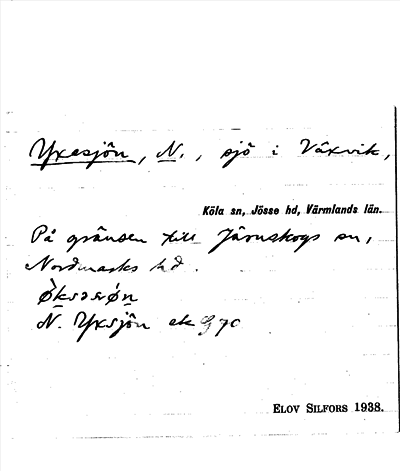 Yxesjön, N., sjö i Växvik,
Köla sn, Jösse hd, Värmlands län.
På gränsen till Järnskogs sn,
Nordmarks hd.
N. Yxsjön ek 70
ELOV SILFORS 1938.